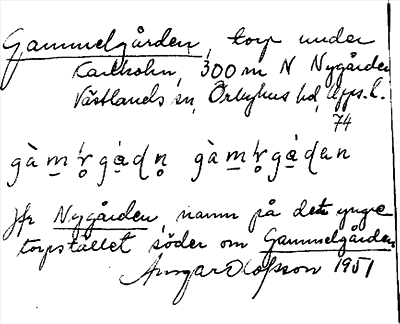 Gammelgården, torp under
Karlholm, 300 m N Nygården
Västlands sn, Örbyhus hd, Upps. l.
74
gàm̥r̥gá̱dn̥ gàm̥r̥gá̱dan
Jfr Nygården, namn på det yngre
torpstället söder om Gammelgården
Ansgar Olofsson 1951